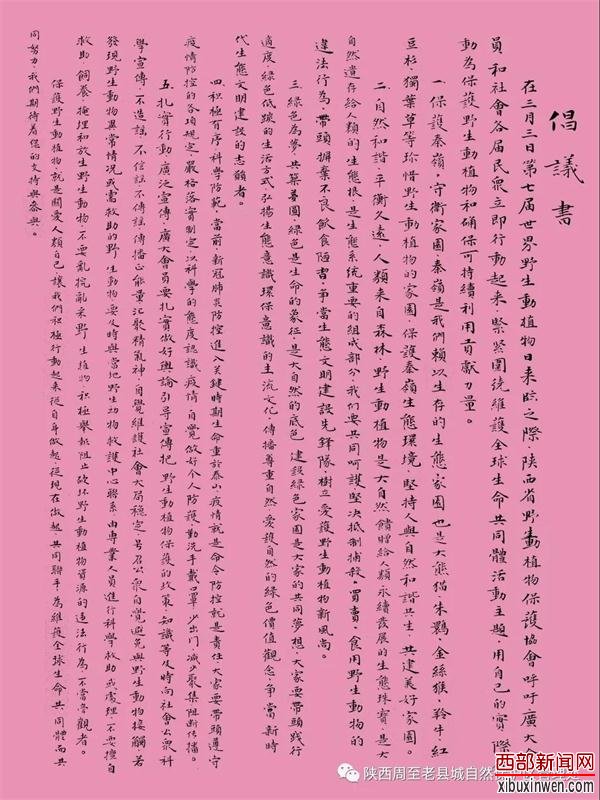 倡議書
在三月三日第七届世界野生動植物日来臨之際，陝西省野動植物保護協會呼吁廣大會
員和社會各届民衆立即行動起来，緊緊圍繞維護全球生命共同體活動主題，用自己的實際行
動為保護野生動植物和确保可持續利用貢獻力量。
一、保護秦嶺，守衛家園，秦嶺是我們賴以生存的生態家園也是大熊猫、朱鹮、金絲猴、羚牛、紅
豆杉、獨葉草等珍惜野生動植物的家園，保護秦嶺生態環境，堅持人與自然和諧共生，共建美好家園。
二、自然和諧，平衡久遠，人類来自森林，野生動植物是大自然饋贈給人類永續發展的生態珠寶，是大
自然遺存給人類的生態根，是生態系統重要的組成部分，我們要共同呵護堅决抵制捕殺、買賣、食用野生動物的
違法行為，帶頭摒棄不良飲食陋習，争當生態文明建設先鋒隊，樹立愛護野生動植物新風尚。
三、綠色為夢，共築春園，綠色是生命的象征，是大自然的底色，建設綠色家園是大家的共同夢想，大家要帶頭践行
適度、綠色低碳的生活方式弘揚生態意識環保意識的主流文化，傳播尊重自然、愛護自然的綠色價值觀念，争當新時
代生態文明建設的志願者。
四、積極有序，科學防範，當前，新冠肺炎防控進入关鍵時期生命重於泰山，疫情就是命令防控就是責任，大家要帶頭遵守
疫情防控的各項規定，嚴格落實制定，以科學的態度認識疫情，自覺做好个人防護，勤洗手戴口罩，少出门，减少聚集阻断传播。
五、扎實行動，廣泛宣傳，廣大會員要扎實做好輿論引導宣傳把野生動植物保護的政策、知識等及時向社會公衆科
學宣傳，不造謠、不信謠不傳謠，傳播正能量汇聚精氣神，自覺維護社會大局穩定，号召公眾自覺避免與野生動物接觸若
發現野生動物異常情况或需救助的野生動物要及時與當地野生动物救護中心聯系，由專業人員進行科學救助或處理，不要擅自
救助、飼養、掩埋和放生野生動物，不要亂挖亂采野生植物，積極舉報阻止破坏野生動植物資源的违法行為，不當旁觀者。
保護野生動植物就是關愛人類自己讓我們積極行動起来從自身做起，從現在做起，共同聯手，為維護全球生命共同體而共
同努力，我們期待着您的支持與参與。
陕西周至老县城自然
西部新闻网
xibuxinwen.com